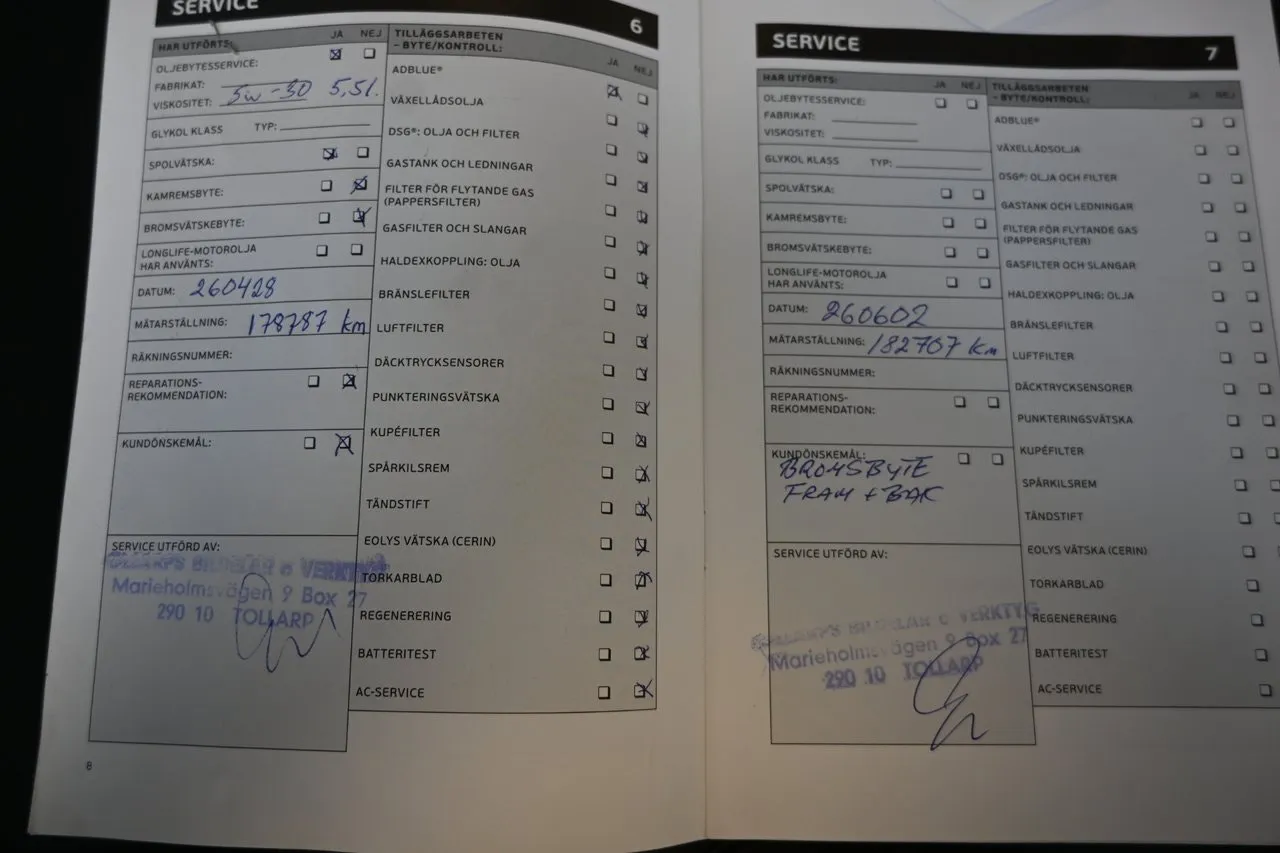 SERVICE 6
HAR UTFÖRTS: JA NEJ
OLJEBYTESSERVICE:
FABRIKAT:
VISKOSITET: 5W-30 5,5l.
GLYKOL KLASS TYP:
SPOLVÄTSKA:
KAMREMSBYTE:
BROMSVÄTSKEBYTE:
LONGLIFE-MOTOROLJA
HAR ANVÄNTS:
DATUM: 260428
MÄTARSTÄLLNING: 178787 km
RÄKNINGSNUMMER:
REPARATIONS-
REKOMMENDATION:
KUNDÖNSKEMÅL:
SERVICE UTFÖRD AV:
BILDELAR & VERKTYG
Marieholmsvägen 9 Box 27
290 10 TOLLARP
TILLÄGGSARBETEN
– BYTE/KONTROLL: JA NEJ
ADBLUE®
VÄXELLÅDSOLJA
DSG®: OLJA OCH FILTER
GASTANK OCH LEDNINGAR
FILTER FÖR FLYTANDE GAS
(PAPPERSFILTER)
GASFILTER OCH SLANGAR
HALDEXKOPPLING: OLJA
BRÄNSLEFILTER
LUFTFILTER
DÄCKTRYCKSENSORER
PUNKTERINGSVÄTSKA
KUPÉFILTER
SPÅRKILSREM
TÄNDSTIFT
EOLYS VÄTSKA (CERIN)
TORKARBLAD
REGENERERING
BATTERITEST
AC-SERVICE
8
SERVICE 7
HAR UTFÖRTS: JA NEJ
OLJEBYTESSERVICE:
FABRIKAT:
VISKOSITET:
GLYKOL KLASS TYP:
SPOLVÄTSKA:
KAMREMSBYTE:
BROMSVÄTSKEBYTE:
LONGLIFE-MOTOROLJA
HAR ANVÄNTS:
DATUM: 260602
MÄTARSTÄLLNING: 182707 km
RÄKNINGSNUMMER:
REPARATIONS-
REKOMMENDATION:
KUNDÖNSKEMÅL:
BROMSBYTE
FRAM + BAK
SERVICE UTFÖRD AV:
BILDELAR & VERKTYG
Marieholmsvägen 9 Box 27
290 10 TOLLARP
TILLÄGGSARBETEN
– BYTE/KONTROLL: JA NEJ
ADBLUE®
VÄXELLÅDSOLJA
DSG®: OLJA OCH FILTER
GASTANK OCH LEDNINGAR
FILTER FÖR FLYTANDE GAS
(PAPPERSFILTER)
GASFILTER OCH SLANGAR
HALDEXKOPPLING: OLJA
BRÄNSLEFILTER
LUFTFILTER
DÄCKTRYCKSENSORER
PUNKTERINGSVÄTSKA
KUPÉFILTER
SPÅRKILSREM
TÄNDSTIFT
EOLYS VÄTSKA (CERIN)
TORKARBLAD
REGENERERING
BATTERITEST
AC-SERVICE